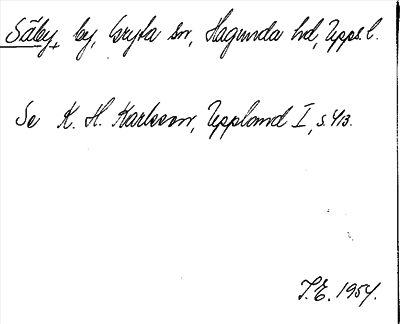 Säby, by, Gryta sn, Hagunda hd, Upps. l.
Se K. H. Karlsson, Uppland I, s. 413.
T. E. 1954.